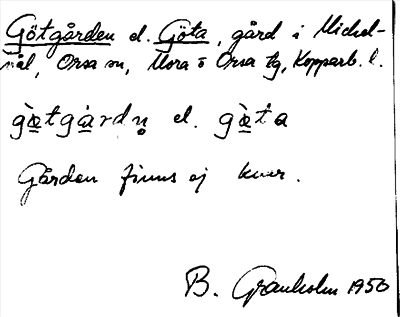 Götgården el. Göta, gård i Michel-
mål, Orsa sn, Mora o Orsa tg, Kopparb. l.
gæ̀tgàrdṇ el. gæ̀ta
Gården finns ej kvar.
B. Granholm 1950